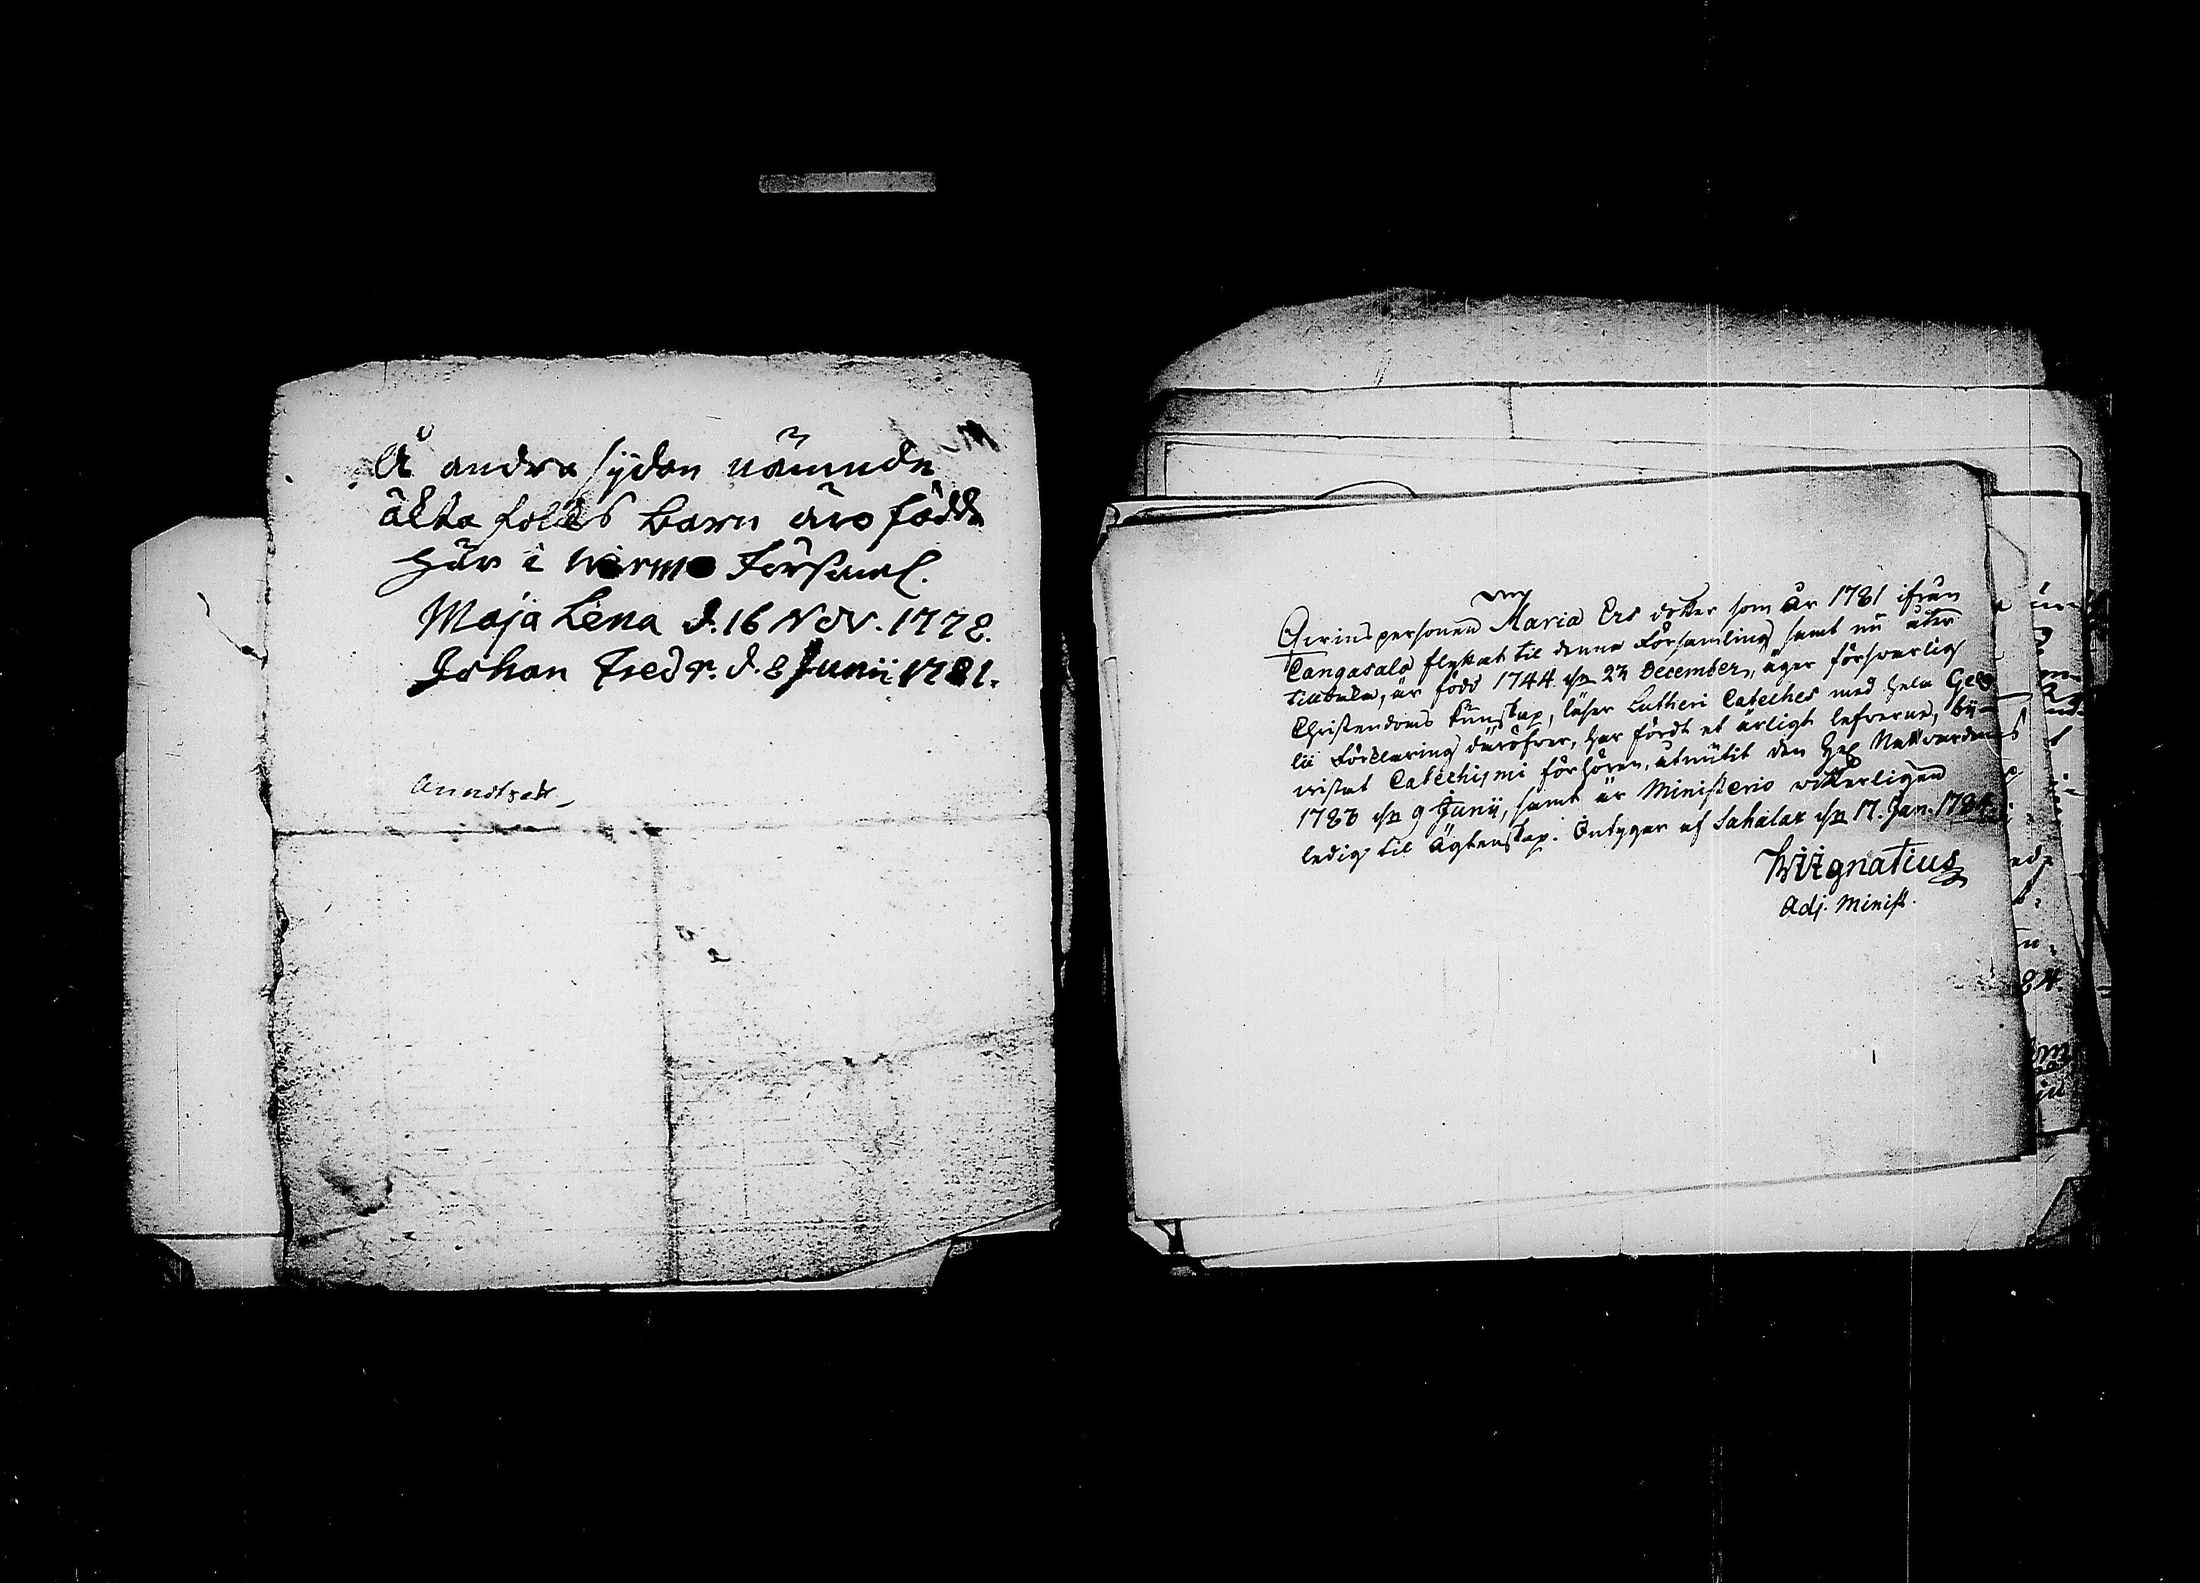 Å andra sydan nämnde
äkta folks barn äro födde
här i Wirmo Församl.
Maja Lena d. 16 Nov. 1778.
Johan Fredr. d. 8 Junii 1781.
Qvinspersonen Maria Ers dotter som år 1781 ifrån
Cangasala flyttat til denna Församling samt nu åter
tillbaka, är född 1744 d. 23 December, äger försvarlig
Christendoms kunskap, läser Lutheri Cateches med hela Gezelii
Förklaring däröfver, har fördt et ärligt lefverne, bii-
vistat Catechismi förhören, utnütit den Hel. Nattvarden
1783 d. 9 Junii, samt är Ministerio vitterligen
ledig til Ägtenskap. Intygar af Sahalax d. 17. Jan. 1784
W Ignatius
Adj. Minist.